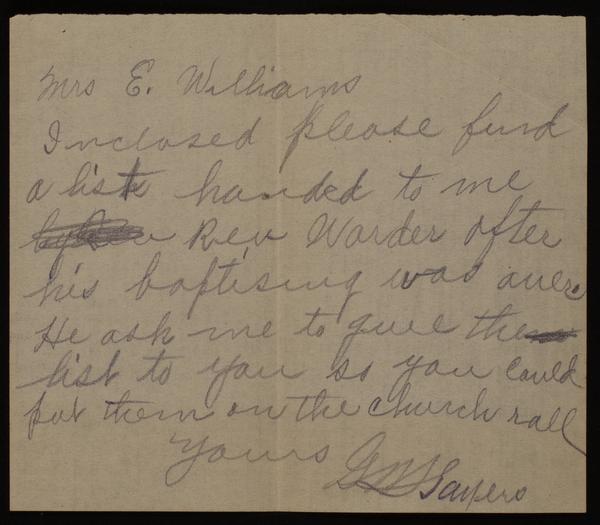 Mrs E. Williams
Inclosed please find
a list handed to me
Rev Warder after
his baptising was over
He ask me to give the
list to you so you could
put them on the church roll
Yours G M Sayers